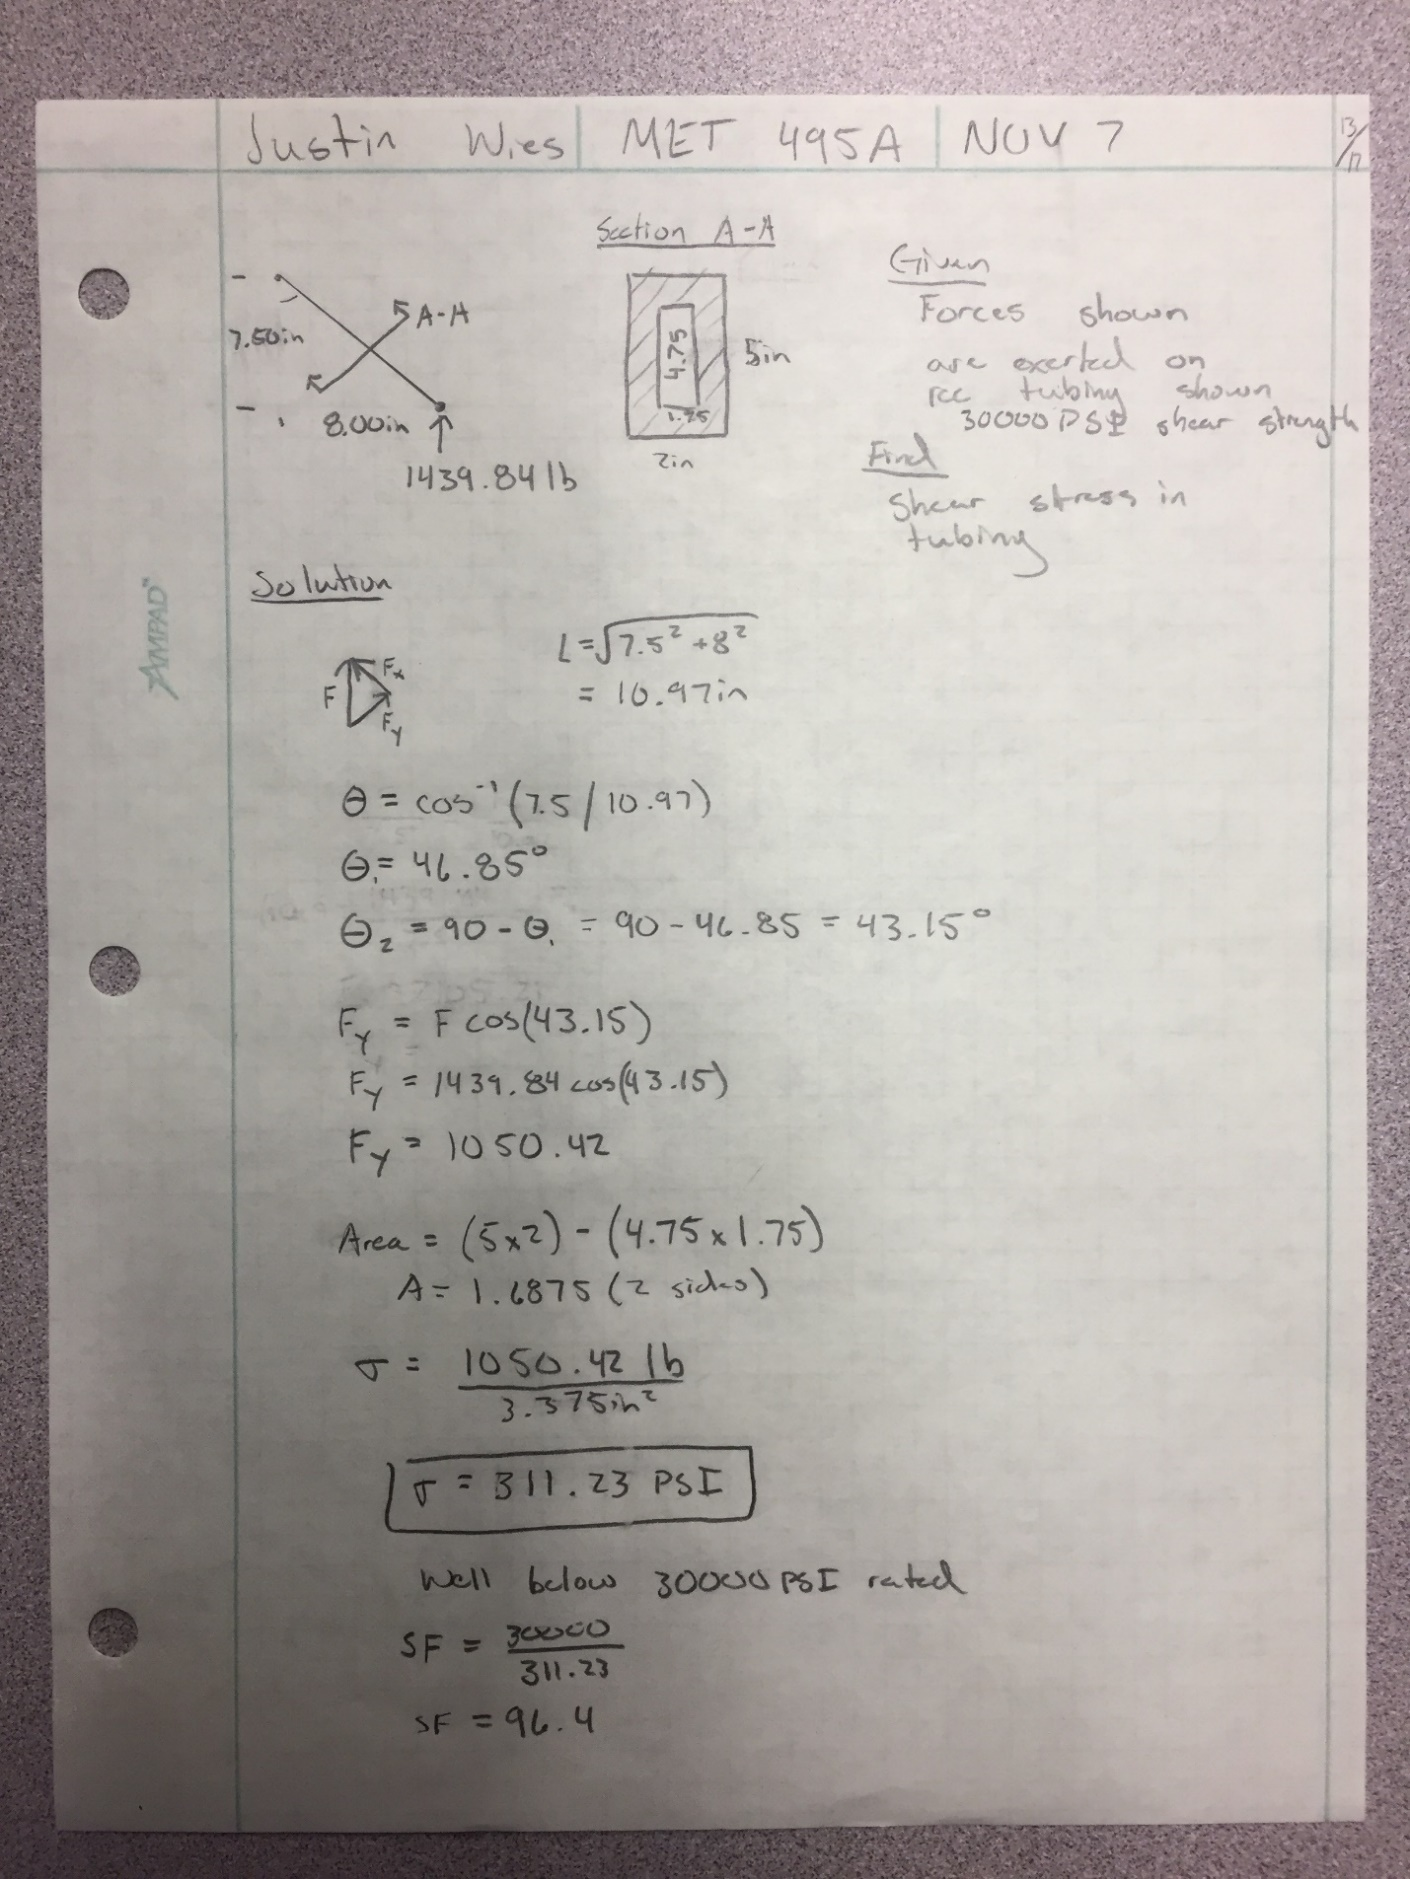 Justin Wies | MET 495A | NOV 7
13/17
Section A-A
A-A
7.50in
8.00in
1439.84 lb
4.75
1.75
5in
2in
Given
Forces shown
are exerted on
rec tubing shown
30000 PSI shear strength
Find
Shear stress in
tubing
AMPAD™
Solution
F
Fx
Fy
L = √7.5² + 8²
= 10.97in
θ = cos⁻¹(7.5/10.97)
θ₁ = 46.85°
θ₂ = 90 - θ₁ = 90 - 46.85 = 43.15°
Fy = F cos(43.15)
Fy = 1439.84 cos(43.15)
Fy = 1050.42
Area = (5x2) - (4.75x1.75)
A = 1.6875 (2 sides)
σ = 1050.42 lb
3.375in²
σ = 311.23 PSI
Well below 30000 PSI rated
SF = 30000
311.23
SF = 96.4